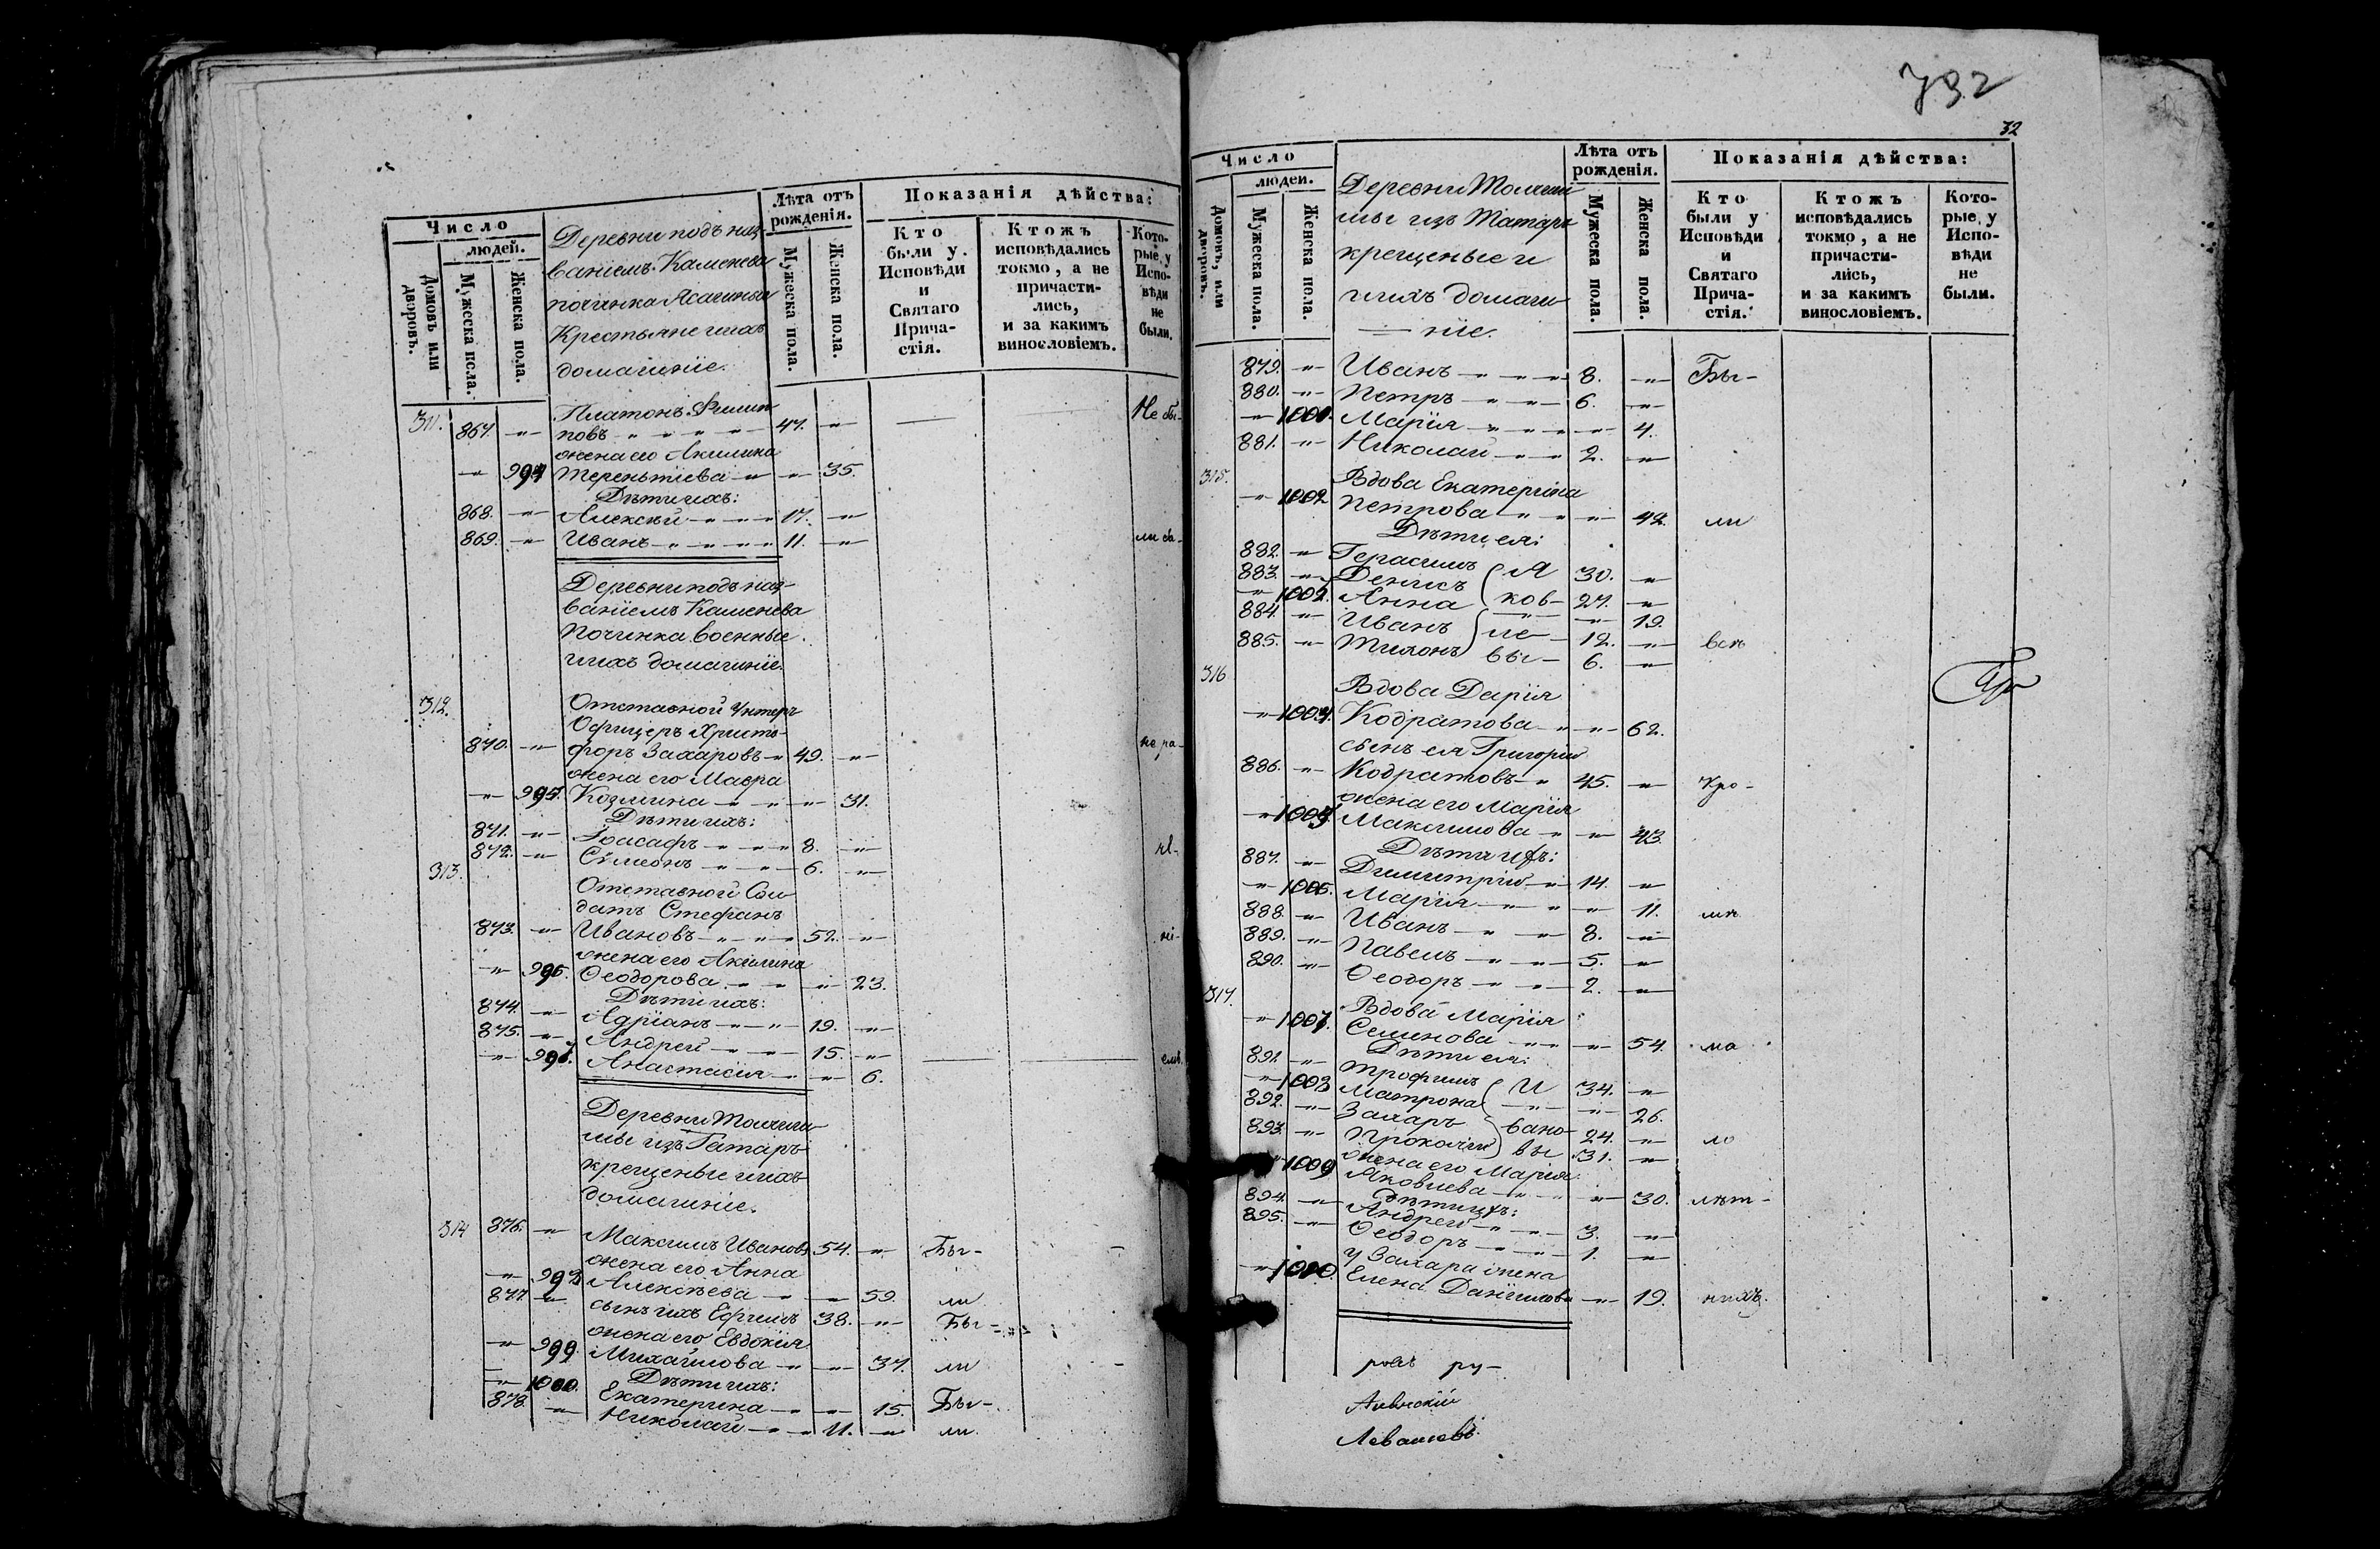 Число
людей.
Домовъ или дворовъ.
Мужеска пола.
Женска пола.
Деревни подъ наз-
ваніемъ Каменева
починка Ясашныя
Крестьяне и ихъ
домашніе.
Лѣта отъ рожденія.
Мужеска пола.
Женска пола.
Показанія дѣйства:
Кто были у Исповѣди и Святаго Прича- стія.
Ктожъ исповѣдались токмо, а не причасти- лись, и за какимъ винословіемъ.
Кото- рые у Испо- вѣди не были.
311. Платонъ Филип Не бы-
867. -„- повъ 47. -„-
жена его Акилина
-„- 994 Терентіева -„- 35.
Дѣти ихъ:
868. -„- Алексѣй 17. -„-
869. -„- Иванъ 11. -„-
Деревни подъ наз-
ваніемъ Каменева
Починка военные
и ихъ домашніе.
312. Отставной Унтеръ
Офицеръ Христо-
870. -„- форъ Захаровъ 49. -„-
жена его Мавра
-„- 995. Козмина -„- 31.
Дѣти ихъ:
871. -„- Іоасафъ 8. -„-
872. -„- Сѵмеонъ 6. -„-
313. Отставной Сол
датъ Стефанъ
873. -„- Ивановъ 52. -„-
жена его Акилина
-„- 996. Ѳеодорова -„- 23.
Дѣти ихъ:
874. -„- Адріанъ 19. -„-
875. -„- Андрей 15. -„-
-„- 997. Анастасія -„- 6.
Деревни Толчи
мы изъ Татаръ
крещеные и ихъ
домашніе.
314 876. -„- Максимъ Ивановъ 54. -„- Бы-
жена его Анна
-„- 998 Алексѣева -„- 59. ли
877 -„- сынъ ихъ Ефимъ 38. -„- Бы-
жена его Евдокія
-„- 999. Михайлова -„- 37. ли
Дѣти ихъ:
-„- 1000. Екатерина -„- 15. Бы-
878. -„- Николай 11. -„- ли
732
32
Число
людей.
Домовъ, или дворовъ.
Мужеска пола.
Женска пола.
мы изъ Татаръ
крещеные и
ихъ домаш
— ніе.
Лѣта отъ рожденія.
Мужеска пола.
Женска пола.
Показанія дѣйства:
Кто были у Исповѣди и Святаго Прича- стія.
Ктожъ исповѣдались токмо, а не причасти- лись, и за какимъ винословіемъ.
Кото- рые у Испо- вѣди не были.
879. -„- Иванъ 8. -„- Бы-
880. -„- Петръ 6. -„-
-„- 1001. Марія -„- 4.
881. -„- Николай 2. -„-
315. Вдова Екатерина
-„- 1002 Петрова -„- 42. ли
Дѣти ея:
882. -„- Герасимъ Я 30. -„-
883. -„- Денисъ ков- 27. -„-
Анна -„- 19.
884. -„- Иванъ ле- 12. -„- всѣ
885. -„- Тихонъ вы- 6. -„-
316 Вдова Дарія
Кодратова -„- 62.
сынъ ея Григорій
886. -„- Кодратовъ 45. -„- кро-
жена его Марія
Максимова -„- 43.
Дѣти ихъ:
887. -„- Димитрій 14. -„-
-„- 1006. Марія -„- 11. мѣ
888. -„- Иванъ 8. -„-
889. -„- Павелъ 5. -„-
890. -„- Ѳеодоръ 2. -„-
317. Вдова Марія
-„- 1007. Семенова -„- 54. ма
Дѣти ея:
891. -„- Трофимъ И 34. -„-
-„- 1008 Матрона -„- 26.
892. -„- Захаръ вано- 24. -„- ло
893. -„- Прокопій вы 31. -„-
жена его Марія
1009 Яковлева -„- 30. лѣт-
Дѣти ихъ:
894. -„- Андрей 3. -„-
895. -„- Ѳеодоръ 1. -„-
у Захара жена
-„- 1010. Елена Данилова -„- 19. нихъ.
ру-
Левашевъ